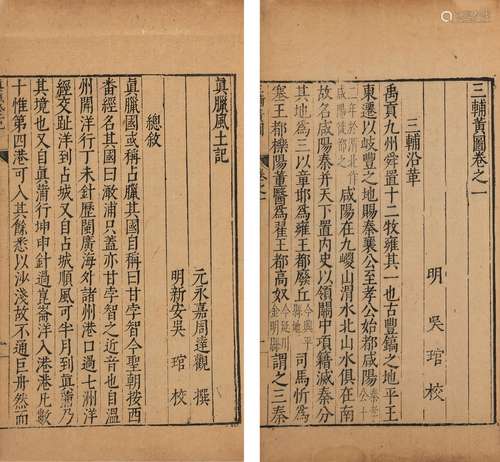 三輔黃圖卷之一
明 吳琯 校
三輔沿革
禹貢九州舜置十二牧雍其一也古豐鎬之地平王
東遷以岐豐之地賜秦襄公至孝公始都咸陽秦孝公十
二年於渭北作咸陽徙都之咸陽在九嵕山渭水北山水俱在南
故名咸陽秦并天下置内史以領關中項籍滅秦分
其地爲三以章邯爲雍王都廢丘今興平縣地司馬忻爲
塞王都櫟陽董翳爲翟王都高奴今延川金明縣謂之三秦
眞臘風土記
元永嘉周達觀 撰
明新安吳 琯 校
總敘
眞臘國或稱占臘其國自稱曰甘孛智今聖朝按西
番經名其國曰澉浦只蓋亦甘孛智之近音也自溫
州開洋行丁未針歷閩廣海外諸州港口過七洲洋
經交趾洋到占城又自占城順風可半月到眞蒲乃
其境也又自眞蒲行坤申針過崑崙洋入港港凡數
十惟第四港可入其餘悉以沙淺故不通巨舟然而